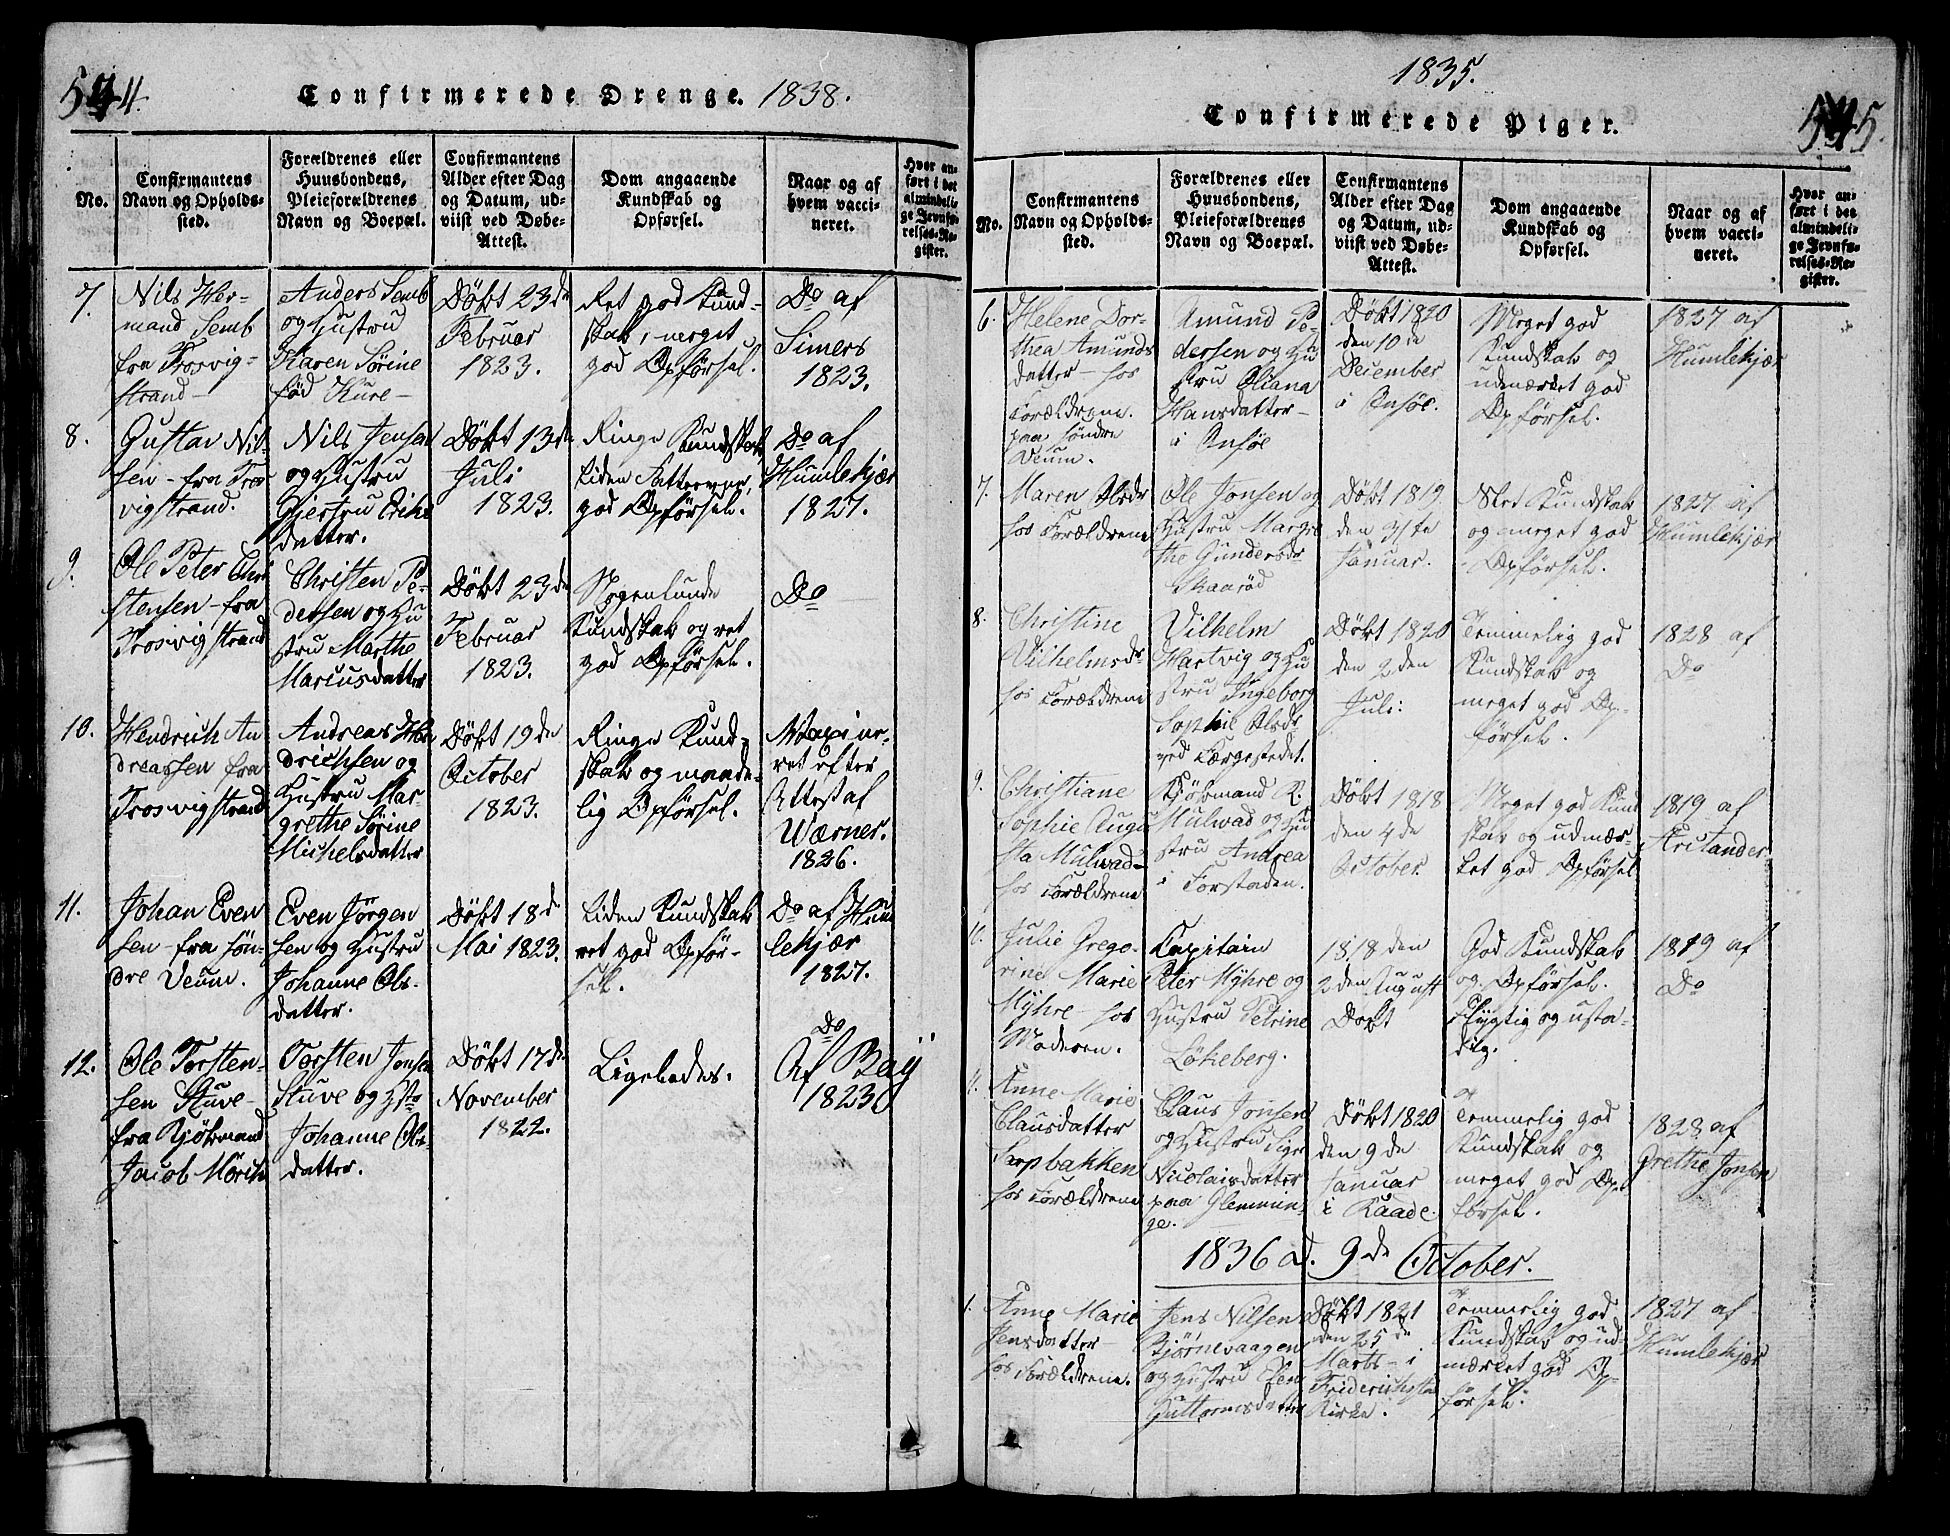 544
Confirmerede Drenge. 1838.
No.
Confirmantens
Navn og Opholds-
sted.
Forældrenes eller
Huusbondens,
Pleieforældrenes
Navn og Boepæl.
Confirmantens
Alder efter Dag
og Datum, ud-
viist ved Døbe-
Attest.
Dom angaaende
Kundskab og
Opførsel.
Naar og af
hvem vacci-
neret.
Hvor an-
ført i det
almindeli-
ge Jevnfø-
relses-Re-
gister.
7.
Nils Her-
mand Semb
fra Trosvig-
strand-
Anders Semb
og Hustru
Karen Sørine
fød Kure-
Døbt 23de
Februar
1823.
Ret god Kund-
skab, meget
god Opførsel.
Do af
Simers
1823.
8.
Gustav Nil-
sen - fra Tros
vigstrand.
Nils Jensen
og Hustru
Gjertru Eriks
datter.
Døbt 13de
Juli
1823.
Ringe Kundskab
liden Fatteevne,
god Opførsel.
Do af
Humlekjær
1827.
9.
Ole Peter Chri
stensen - fra
Trosvigstrand
Christen Pe-
dersen og Hu
stru Marthe
Mariusdatter
Døbt 23de
Februar
1823.
Nogenlunde
Kundskab og ret
god Opførsel.
Do
10.
Hendrich An
dreassen fra
Trosvigstrand
Andreas Hen
drichsen og
Hustru Mar-
grethe Sørine
Michelsdatter
Døbt 19de
October
1823.
Ringe Kund-
skab og maade-
lig Opførsel.
Vaxine-
ret efter
Attest af
Wærner.
1826.
11.
Johan Even
sen - fra søn-
dre Veum.
Even Jørgen
sen og Hustru
Johanne Ols-
datter.
Døbt 18de
Mai 1823.
Liden Kundskab
ret god Opfør-
sel.
Do af Hum
lekjær
1827.
12.
Ole Torsten-
sen Stuve-
fra Kjøbmand
Jacob Mørch
Torsten Jonsen
Stuve og Hstr
Johanne Ols
datter.
Døbt 17de
November
1822.
Ligeledes.
Do
Af Bay
1823
1835.
Confirmerede Piger.
545.
No.
Confirmantens
Navn og Opholds-
sted.
Forældrenes eller
Huusbondens,
Pleieforældrenes
Navn og Boepæl.
Confirmantens
Alder efter Dag
og Datum, ud-
viist ved Døbe-
Attest.
Dom angaaende
Kundskab og
Opførsel.
Naar og af
hvem vacci-
neret.
Hvor an-
ført i det
almindeli-
ge Jevnfø-
relses-Re-
gister.
6.
Helene Dor-
thea Amunds
datter - hos
Forældrene.
paa søndre
Veum.
Amund Pe-
dersen og Hu
stru Oliana
Hansdatter-
i Onsøe
Døbt 1820
den 10de
December
i Onsöe.
Meget god
Kundskab og
udmærket god
Opførsel.
1827 af
Humlekjær
7.
Maren Olsdr
hos Forældrene
Ole Jonsen og
Hustru Margre
the Gundersdr
Skaaröd
Døbt 1819
den 31te
Januar.
Slet Kundskab
og meget god
Opførsel.
1827 af
Humlekjær
8.
Christine
Vilhelmsdr
hos Forældrene
Vilhelm
Hartvig og Hu
stru Ingeborg
Sophie Olsdr
ved Færgestedet.
Døbt 1820
den 2den
Juli:
Temmelig god
Kundskab og
meget god Op-
førsel.
1828 af
Do
9.
Christiane
Sophie Augu
sta Mulwad-
hos Forældrene
Kjøbmand R.
Mulwad og Hu
stru Andrea
i Forstaden.
Døbt 1818
den 4de
October.
Meget god Kund
skab og udmær-
ket god Opførsel
1819 af
Aristander
10.
Julie Grego-
rine Marie
Myhre - hos
Moderen.
Kapitain
Peter Myhre og
Hustru Petrine
Lökeberg.
1818 den
2den August
Døbt
God Kundskab
og Opførsel.
Flygtig og usta-
dig.
1819 af
Do
11.
Anne Marie
Clausdatter
Sropbakken
hos Forældrene
Claus Jonsen
og Hustru
Nicolaisdatter
paa Glemmin-
ge.
Døbt 1820
den 9de
Januar
i Raade.
Temmelig god
Kundskab og
meget god Op
førsel.
1828 af
Grethe Jonsen
1836 d. 9de October.
1.
Anne Marie
Jensdatter-
hos Forældrene.
Jens Nilsen
Bjørnevaagen
og Hustru Elen
Guttormsdatter
Døbt 1821
den 25de
Marts - i
Friderichsta
Kirke.
Temmelig god
Kundskab og ud-
mærket god Op-
førsel.
1827 af
Humlekjær